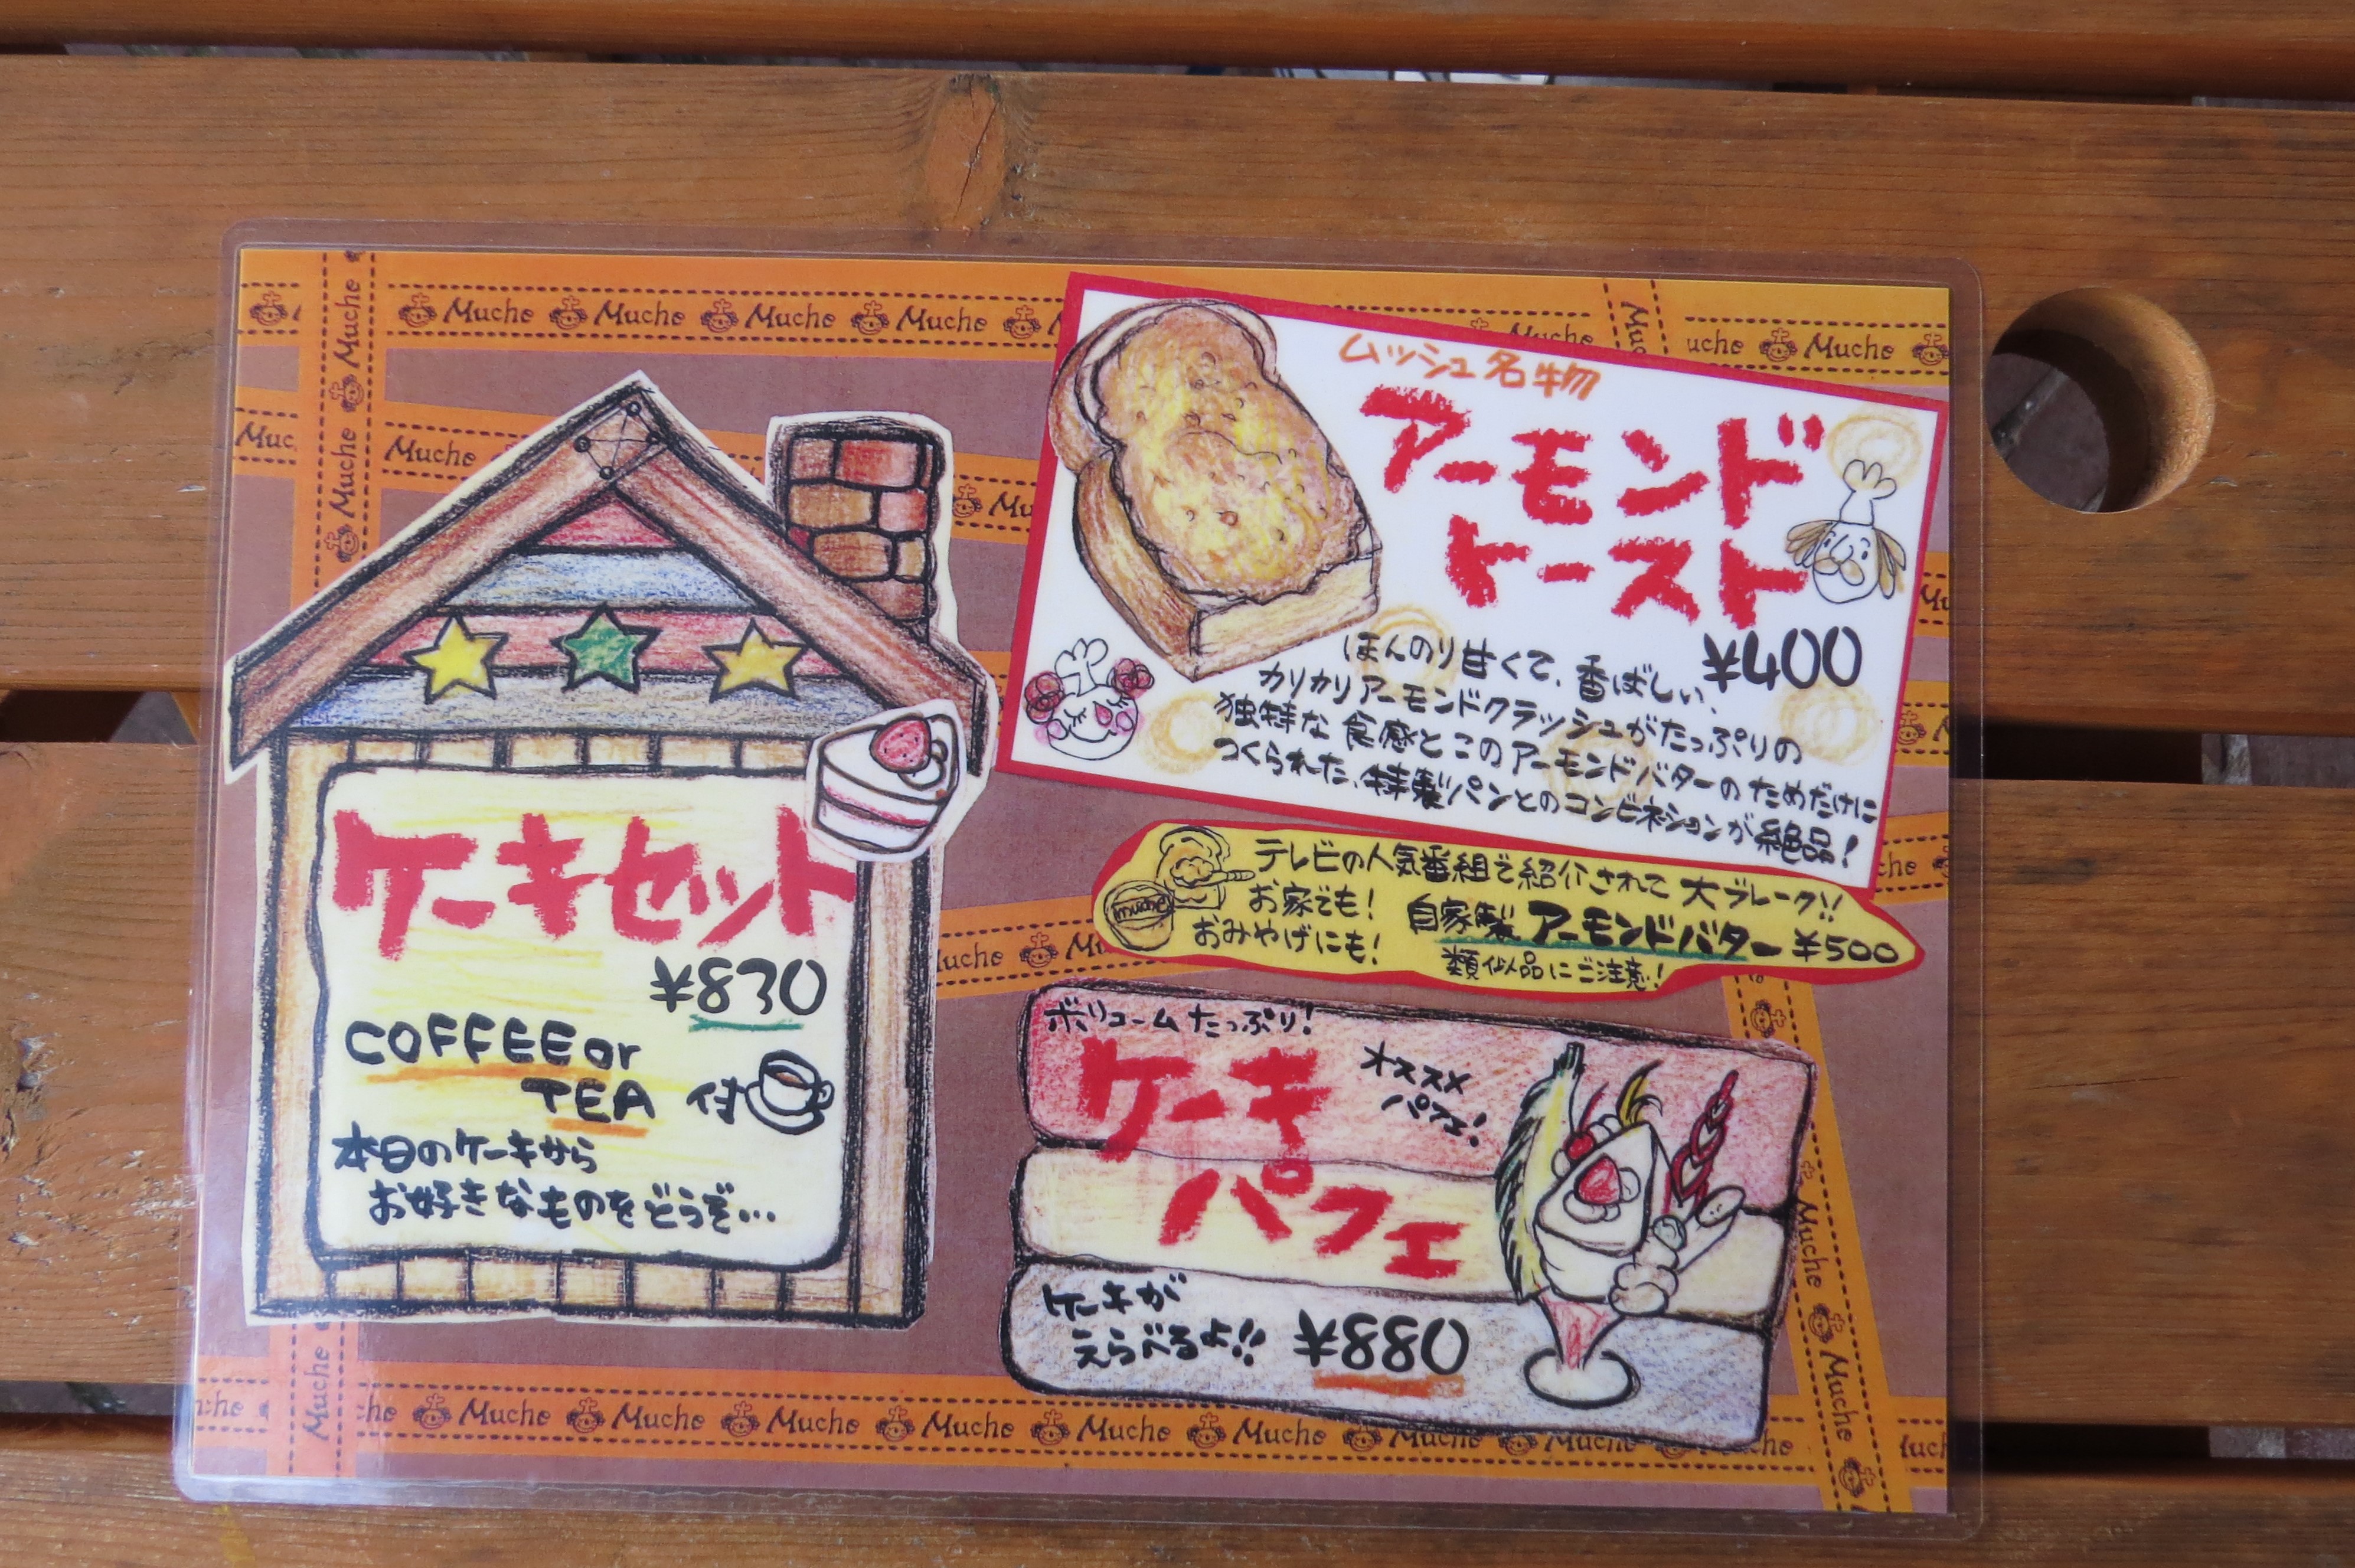 Muche Muche Muche Muche
ケーキセット
¥830
COFFEE or
TEA 付
本日のケーキから
お好きなものをどうぞ…
ムッシュ名物
アーモンド
トースト
¥400
ほんのり甘くて、香ばしい、
カリカリアーモンドクラッシュがたっぷりの
独特な食感とこのアーモンドバターのためだけに
つくられた、特製パンとのコンビネーションが絶品!
テレビの人気番組で紹介されて大ブレーク!!
お家でも!
おみやげにも!
自家製アーモンドバター ¥500
類似品にご注意!
muche
ボリュームたっぷり!
ケーキ
パフェ
オススメ
パフェ!
ケーキが
えらべるよ!!
¥880
Muche Muche Muche Muche Muche Muche Muche Muche